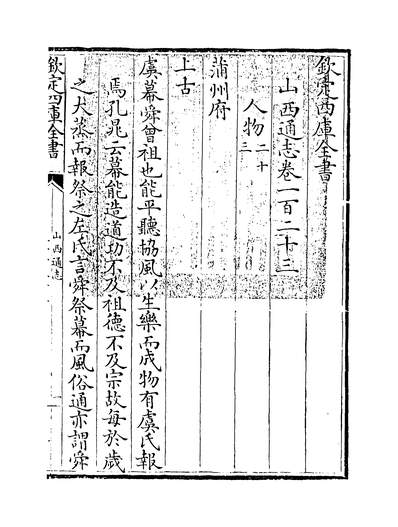 欽定四庫全書
山西通志卷一百二十三
人物二十三
蒲州府
上古
虞幕舜曾祖也能平聽協風以生樂而成物有虞氏報
焉孔晁云幕能造道功不及祖德不及宗故每於歲
之大烝而報祭之左氏言舜祭幕而風俗通亦謂舜
欽定四庫全書
山西通志
一